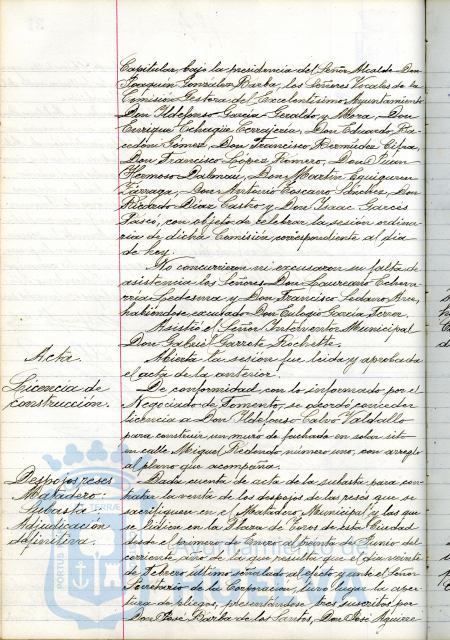 Capitular, bajo la presidencia del Señor Alcalde Don
Joaquín González Barba, los Señores Vocales de la
Comisión Gestora del Excelentísimo Ayuntamiento
Don Ildefonso García Geraldo y Mora, Don
Enrique Echegüe Cerrajería, Don Eduardo
Gómez, Don Francisco Bermúdez Cifra,
Don Francisco López Romero, Don Juan
Hermoso Dalmau, Don Martín Eguiguren
Don Antonio Toscano Sánchez, Don
Ricardo Díaz Castro y Don Isaac Garcés
con objeto de celebrar la sesión ordina-
ria de dicha Comisión, correspondiente al día
de hoy.
No concurrieron ni excusaron su falta de
asistencia los Señores Don Laureano Echeva-
rría Ledesma y Don Francisco Sedano Arce,
habiéndose excusado Don Eulogio García
Asistió el Señor Interventor Municipal
Don Gabriel Garrote Rochette.
Acta.
Abierta la sesión fue leída y aprobada
el acta de la anterior.
Licencia de
construcción.
De conformidad con lo informado por el
Negociado de Fomento, se acordó conceder
licencia a Don Ildefonso Calvo Valdallo
para construir un muro de fachada en solar sito
en calle Miguel Redondo número uno, con arreglo
al plano que acompaña.
Despojos reses
Matadero:
Subasta:
Adjudicación
definitiva.
Dada cuenta de acta de la subasta para con-
tratar la venta de los despojos de las reses que se
sacrifiquen en el Matadero Municipal y las que
se lidien en la Plaza de Toros de esta Ciudad
desde el primero de Enero al treinta de Junio del
corriente año, de la que resulta que el día veinte
de Febrero último señalado al efecto y ante el Señor
Secretario de la Corporación, tuvo lugar la aper-
tura de pliegos, presentándose tres suscritos por
Don José Barba de los Santos, Don José Aguirre
Ayuntamiento de
PORTUS